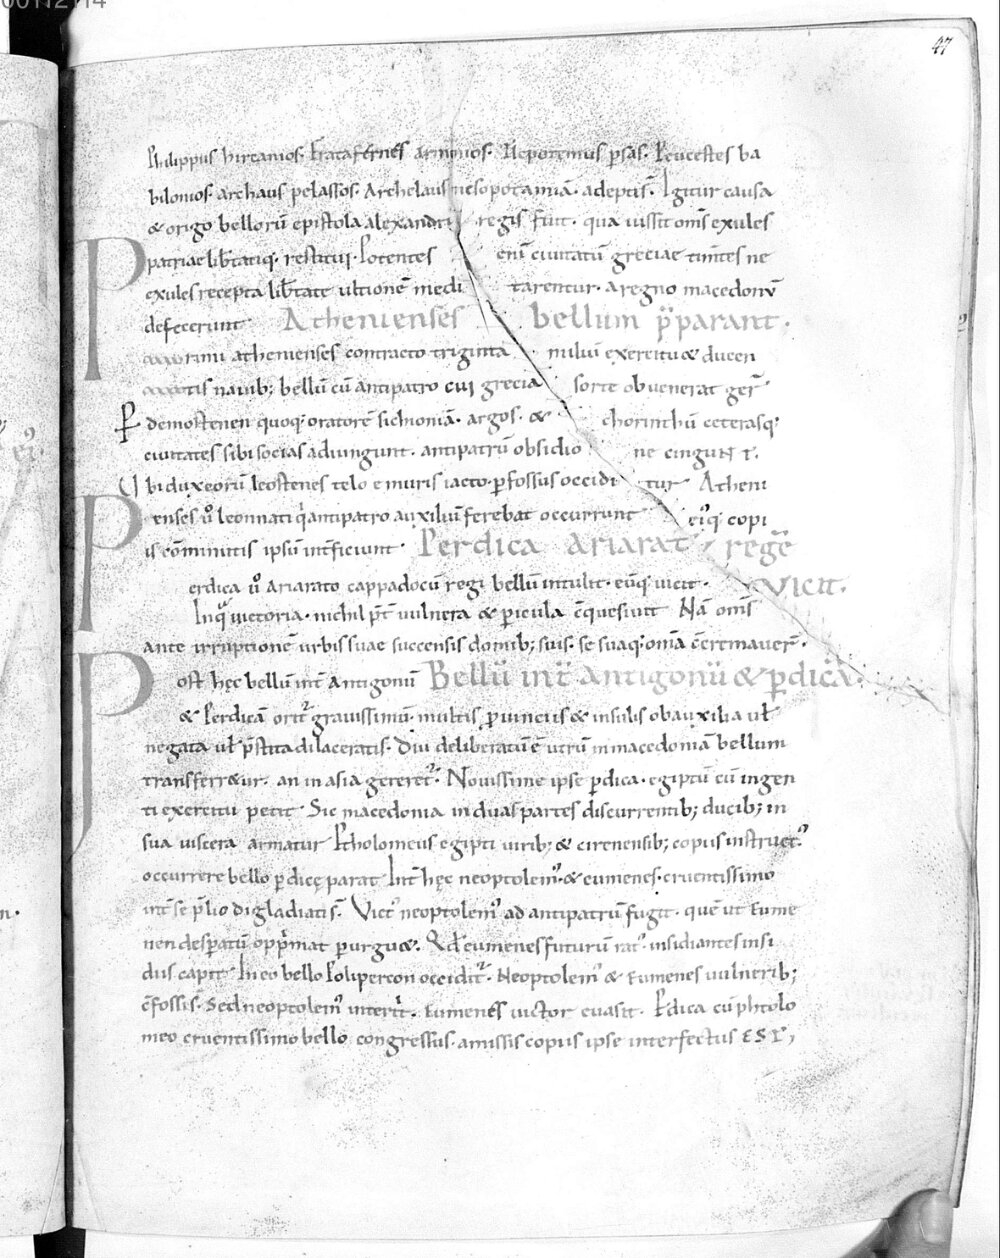 00112114
47
Philippus hircanios. Fratafernes armenios. Neptotemus psas. Peucestes ba
bilonios. archaus pelassos. Archelaus mesopotamiā. adeptis ̄. Igitur causa
& origo bellorū epistola alexandri regis fuit. qua iussit oms̄ exules
patriae lib̄tatiq; restitui. Potentes enī ciuitatū greciae tim̄tes ne
exules recepta lib̄tate ultionē medi tarentur. a regno macedonū
defecerunt Athenienses bellum p̄parant.
P
primi athenienses contracto triginta miliū exercitu & ducen
tis nauib; bellū cū antipatro cui grecia sorte obuenerat ger̄
P demostenen quoq; oratorē sichioniā. argos. & chorinthū ceterasq;
ciuitates sibi socias adiungunt. antipatrū obsidio ne cingunt.
Ubi dux eorū leostenes telo e muris iacto pfossus occidi tur Atheni
P
enses ū leonnati q̇ antipatro auxiliū ferebat occurrunt eiꝰq; copi
is cōminutis ipsū int̄ficiunt. Perdica Ariarat regē
erdica ū Ariarato cappadocū regi bellū intulit. eūq; uicit. Vicit.
In q̄ uictoria. nichil pt̄ uulnera & picula c̄quesiuit Nā oms̄
ante irruptionē urbis suae succensis domib; suis. se suaq; omā c̄cremauer̄.
P
ost hęc bellū int̄ Antigonū Bellū int̄ antigonū & pdicā.
& Perdicā oritᷣ grauissimū. multis puinciis & insulis ob auxilia ul̄
negata ul̄ p̄stita dilaceratis. Diu deliberatū ē utrū in macedoniā bellum
transferretur. an in asia gereretᷣ. Nouissime ipse pdica. egiptū cū ingen
ti exercitu petit Sic macedonia in duas partes discurrentib; ducib; in
sua uiscera armatur Ptholomeus egipti uirib; & cirenensib; copiis instructꝰ
occurrere bello pdicę parat Int̄ hęc neoptolemꝰ & eumenes. cruentissimo
int̄ se p̄lio digladiati s̄. Victꝰ neoptolemꝰ ad antipatrū fugit. quē ut Eume
nen despatū opp̄mat purguet. Qd̄ eumenes futurū ratꝰ. insidiantes insi
diis capit In eo bello Polipercon occiditᷣ. Neoptolemꝰ & Eumenes uulnerib;
c̄fossis ̄. Sed neoptolemꝰ interiit. Eumenes uictor euasit. Pdica cū phtolo
meo cruentissimo bello congressus. amissis copiis ipse interfectus EST;